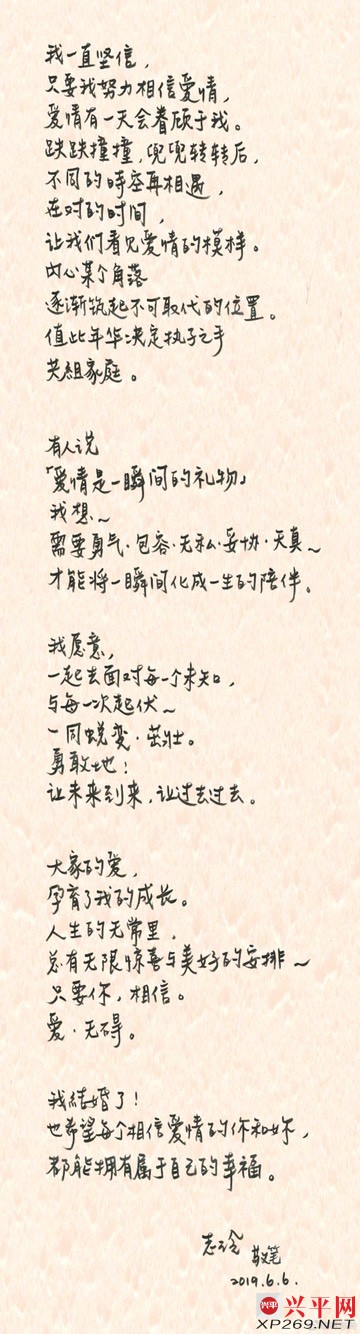 我一直坚信，
只要我努力相信爱情，
爱情有一天会眷顾于我。
跌跌撞撞，兜兜转转后，
不同的時空再相遇，
在对的时间，
让我们看见爱情的模样。
内心某个角落
逐渐筑起不可取代的位置。
值此年华决定执子之手
共組家庭。
有人说
「爱情是一瞬间的礼物」
我想~
需要勇气·包容·无私·妥协·天真~
才能将一瞬间化成一生的陪伴。
我愿意，
一起去面对每一个未知，
与每一次起伏~
一同蜕变·茁壮。
勇敢地！
让未来到来，让过去过去。
大家的爱，
孕育了我的成长。
人生的无常里，
总有无限惊喜与美好的安排~
只要你，相信。
爱·无碍。
我結婚了！
也希望每个相信爱情的你和妳，
都能拥有属于自己的幸福。
志玲 敬笔
2019.6.6.
兴平 兴平网
XP269.NET